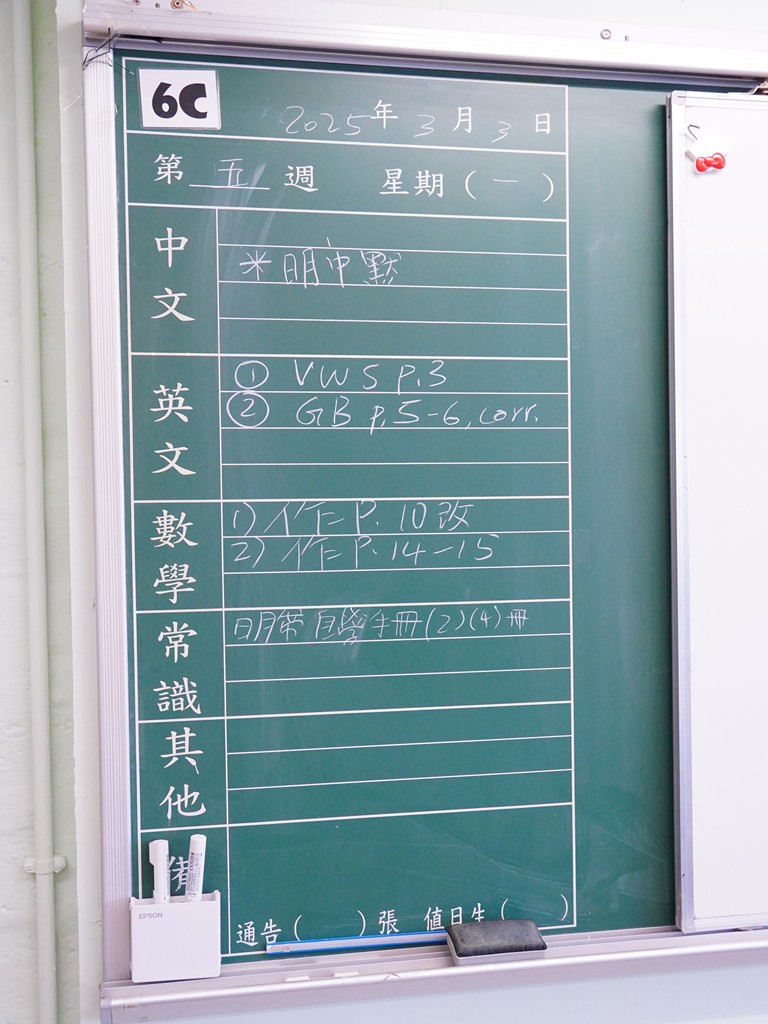 6C
2025年3月3日
第五週 星期(一)
中文
*明中默
英文
① VWS p.3
② GB p.5-6, corr.
數學
1) 作二 P. 10 改
2) 作二 P. 14-15
常識
明帶自學手冊(2)(4)冊
其他
備
EPSON
通告( )張 值日生( )